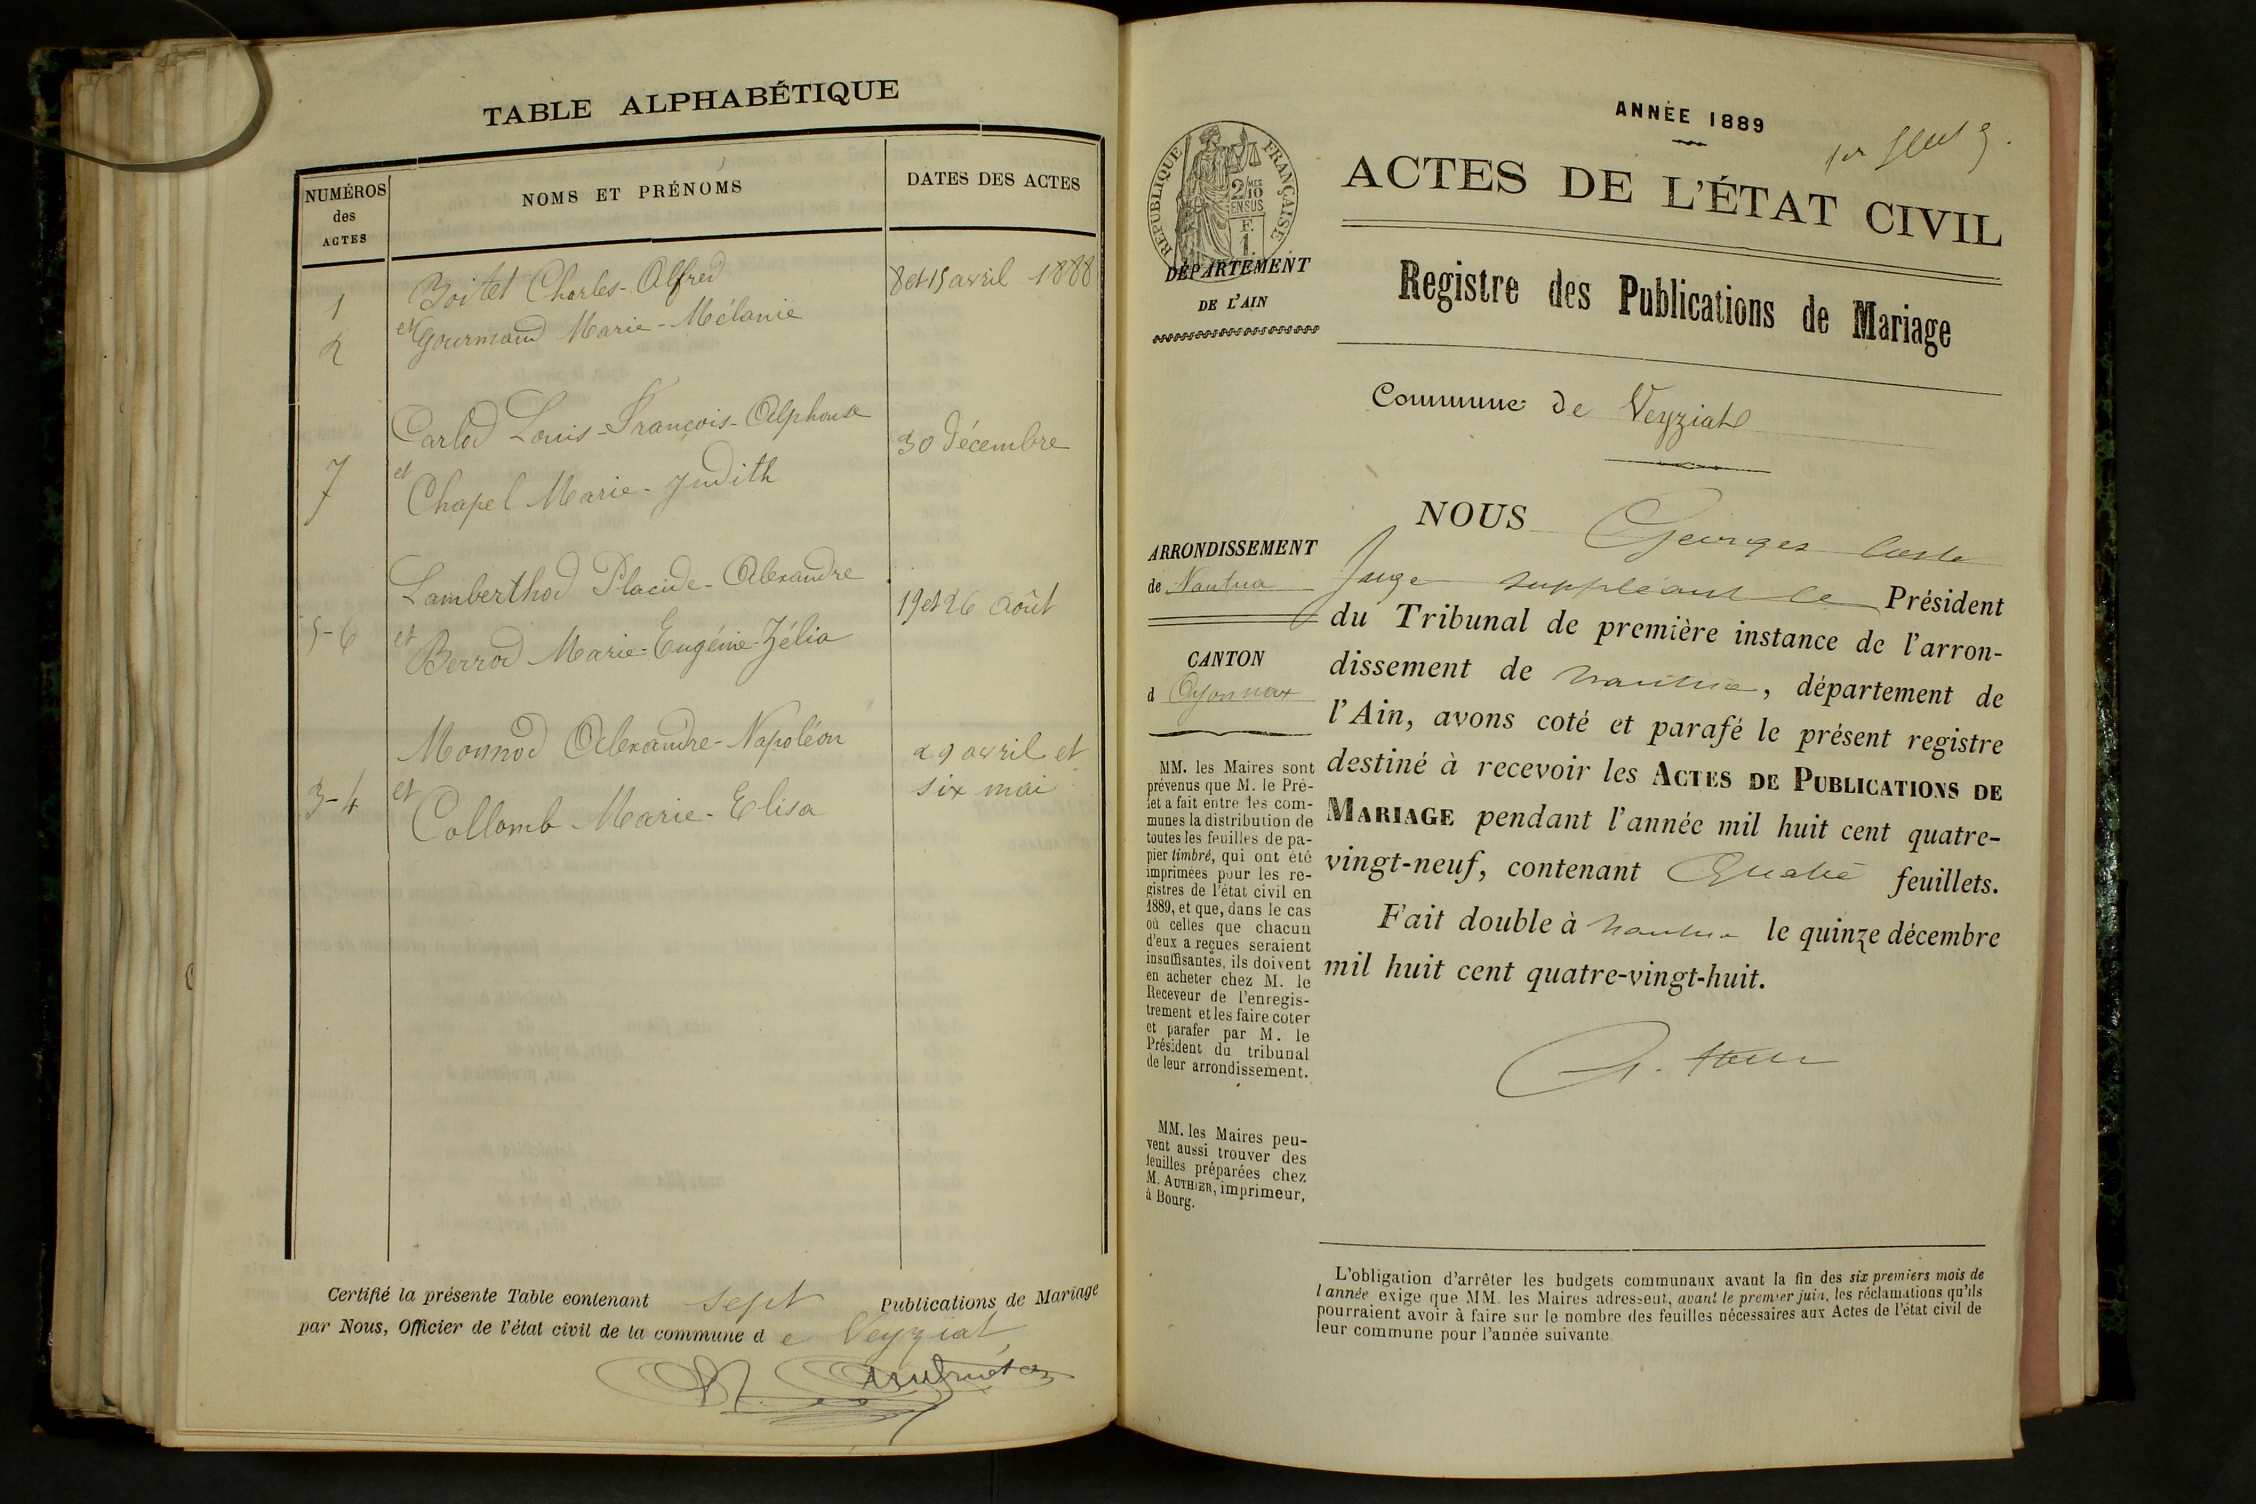 TABLE ALPHABÉTIQUE
NUMÉROS
des
ACTES
NOMS ET PRÉNOMS
DATES DES ACTES
1
Boitet Charles-Alfred
8 et 15 avril 1888
2
et Gourmand Marie-Mélanie
Carlod Louis-François-Alphonse
30 décembre
7
et
Chapel Marie-Judith
Lamberthod Placide-Alexandre
19 et 26 Août
5-6
et
Berrod Marie-Eugénie-Zélia
Monnod Alexandre-Napoléon
29 avril et
six mai
3-4
et
Collomb Marie-Elisa
Certifié la présente Table contenant sept Publications de Mariage
par Nous, Officier de l'état civil de la commune d e Veyziat
ANNÉE 1889
RÉPUBLIQUE FRANÇAISE
2/10
EN SUS
F.
1.
DÉPARTEMENT
DE L'AIN
ACTES DE L'ÉTAT CIVIL
Registre des Publications de Mariage
Commune de Veyziat
ARRONDISSEMENT
de Nantua
CANTON
d Oyonnax
MM. les Maires sont
prévenus que M. le Pré-
fet a fait entre les com-
munes la distribution de
toutes les feuilles de pa-
pier timbré, qui ont été
imprimées pour les re-
gistres de l'état civil en
1889, et que, dans le cas
où celles que chacun
d'eux a reçues seraient
insuffisantes, ils doivent
en acheter chez M. le
Receveur de l'enregis-
trement et les faire coter
et parafer par M. le
Président du tribunal
de leur arrondissement.
MM. les Maires peu-
vent aussi trouver des
feuilles préparées chez
M. AUTHIER, imprimeur,
à Bourg.
NOUS Georges
Juge suppléant le Président
du Tribunal de première instance de l'arron-
dissement de Nantua, département de
l'Ain, avons coté et parafé le présent registre
destiné à recevoir les ACTES DE PUBLICATIONS DE
MARIAGE pendant l'année mil huit cent quatre-
vingt-neuf, contenant Quatre feuillets.
Fait double à Nantua le quinze décembre
mil huit cent quatre-vingt-huit.
L'obligation d'arrêter les budgets communaux avant la fin des six premiers mois de
l'année exige que MM. les Maires adressent, avant le premier juin, les réclamations qu'ils
pourraient avoir à faire sur le nombre des feuilles nécessaires aux Actes de l'état civil de
leur commune pour l'année suivante